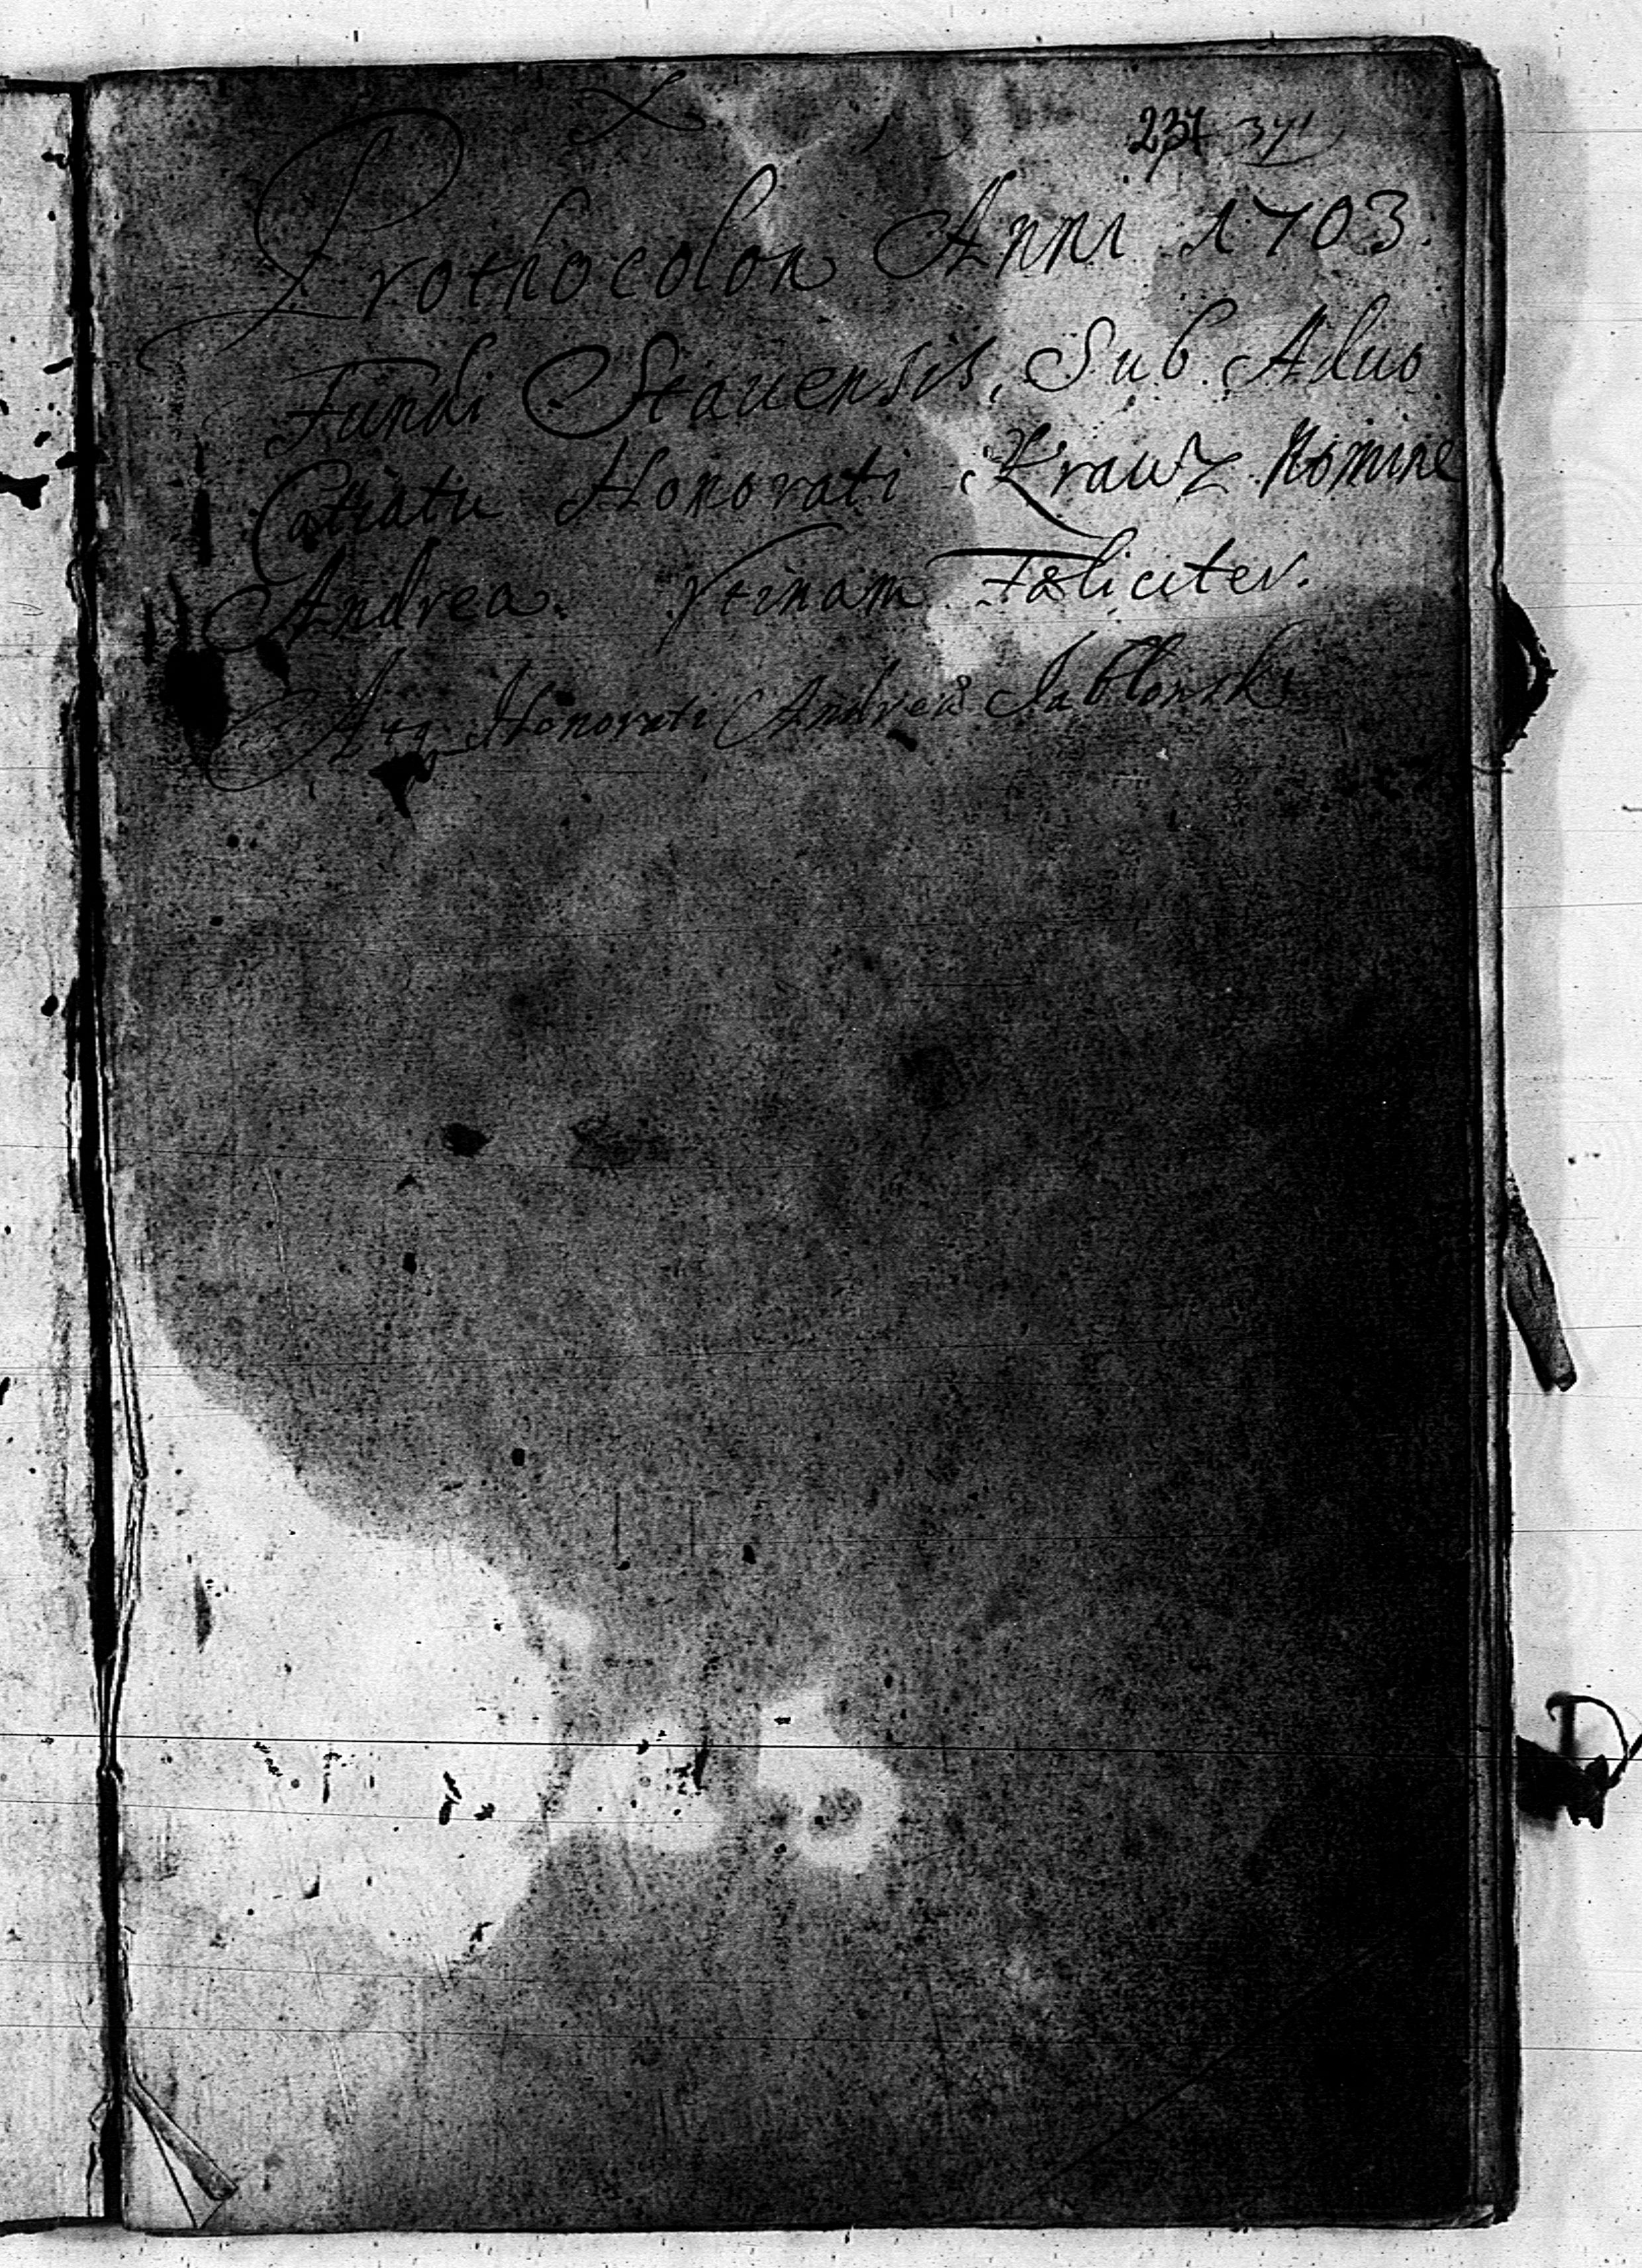 237 371
Prothocolon Anni 1703.
Fundi Stauensis, Sub Aduo
Catiatu Honorati Krawz Nomine
Andrea. Vtinam Fæliciter.
Atq Honorati Andreæ Jabłonski